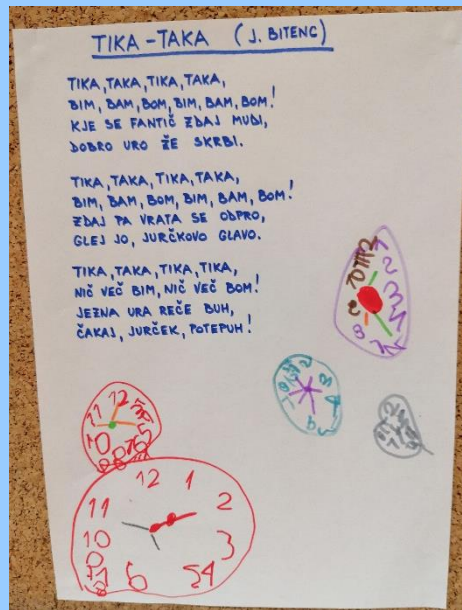 TIKA-TAKA (J. BITENC)
TIKA, TAKA, TIKA, TAKA,
BIM, BAM, BOM, BIM, BAM, BOM!
KJE SE FANTIČ ZDAJ MUDI,
DOBRO URO ŽE SKRBI.
TIKA, TAKA, TIKA, TAKA,
BIM, BAM, BOM, BIM, BAM, BOM!
ZDAJ PA VRATA SE ODPRO,
GLEJ JO, JURČKOVO GLAVO.
TIKA, TAKA, TIKA, TIKA,
NIČ VEČ BIM, NIČ VEČ BOM!
JEZNA URA REČE BUH,
ČAKAJ, JURČEK, POTEPUH!
11 12
10
12 1
11 2
10 3
6 54